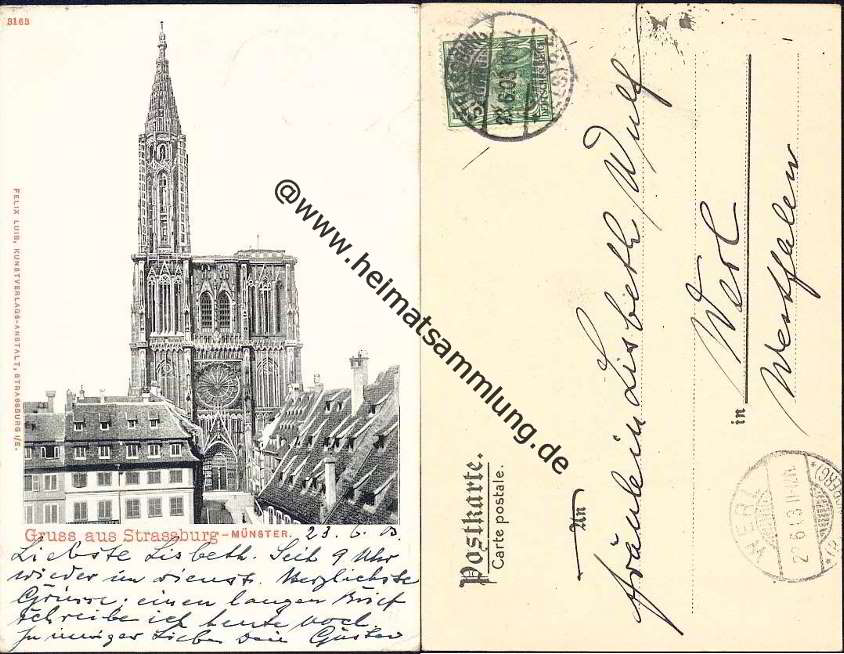 3163
FELIX LUIB, KUNSTVERLAGS-ANSTALT, STRASSBURG I/E.
Gruss aus Strassburg – MÜNSTER. 23. 6. 03.
Liebste Lisbeth. Seit 9 Uhr
wieder im Dienst. Herzlichste
Grüsse; einen langen Brief
schreibe ich heute noch.
In inniger Liebe Dein Gustav
@www.heimatsammlung.de
Postkarte.
Carte postale.
An
Fräulein Lisbeth Wulf
in
Werl
Westfalen
STRASSBURG
23.6.03
WERL